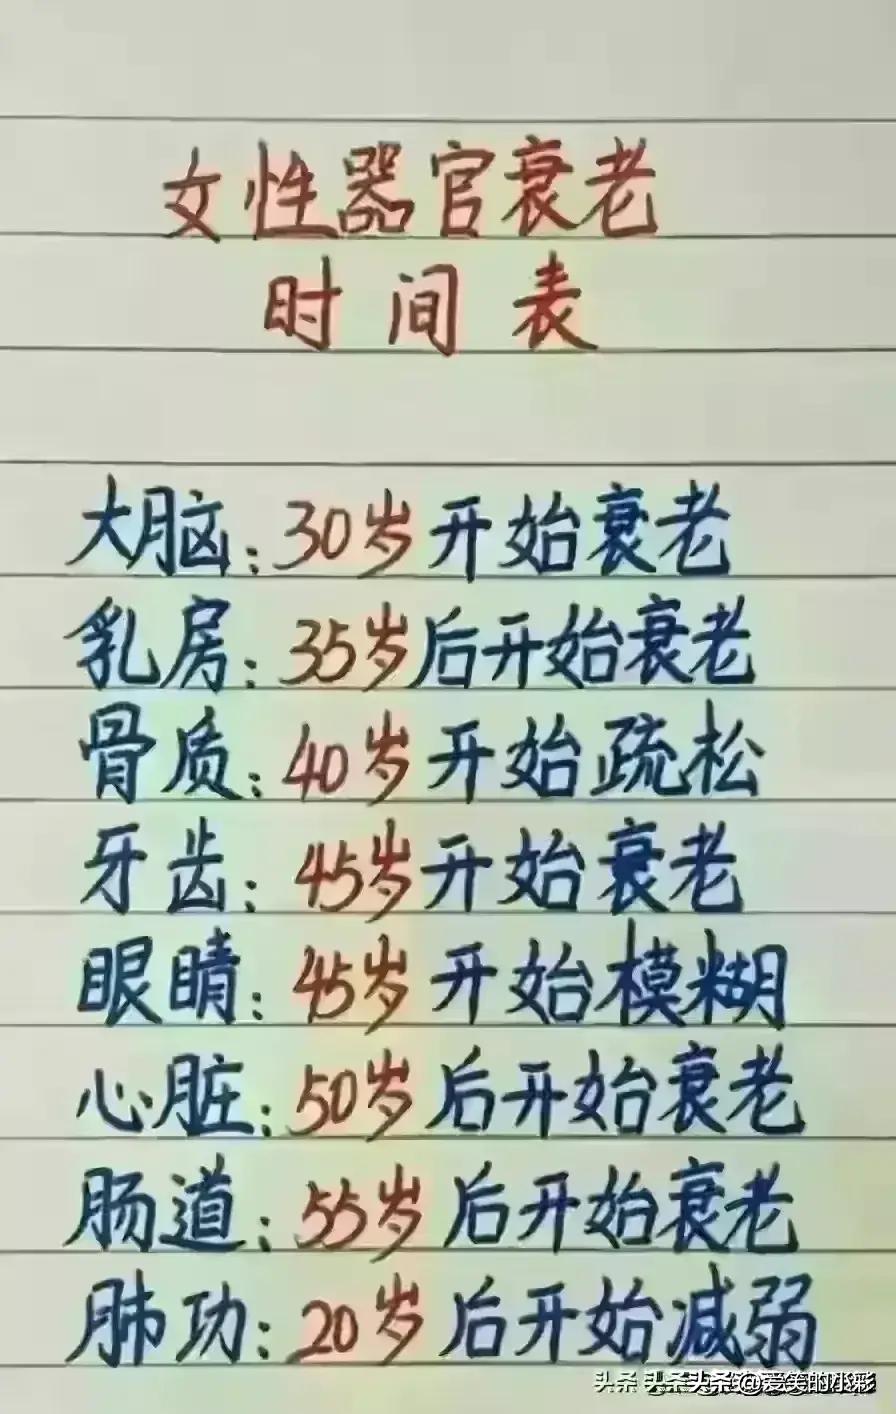 女性器官衰老
时间表
大脑:30岁开始衰老
乳房:35岁后开始衰老
骨质:40岁开始疏松
牙齿:45岁开始衰老
眼睛:45岁开始模糊
心脏:50岁后开始衰老
肠道:55岁后开始衰老
肺功:20岁后开始减弱
头条 头条 头条 @爱笑的小彩